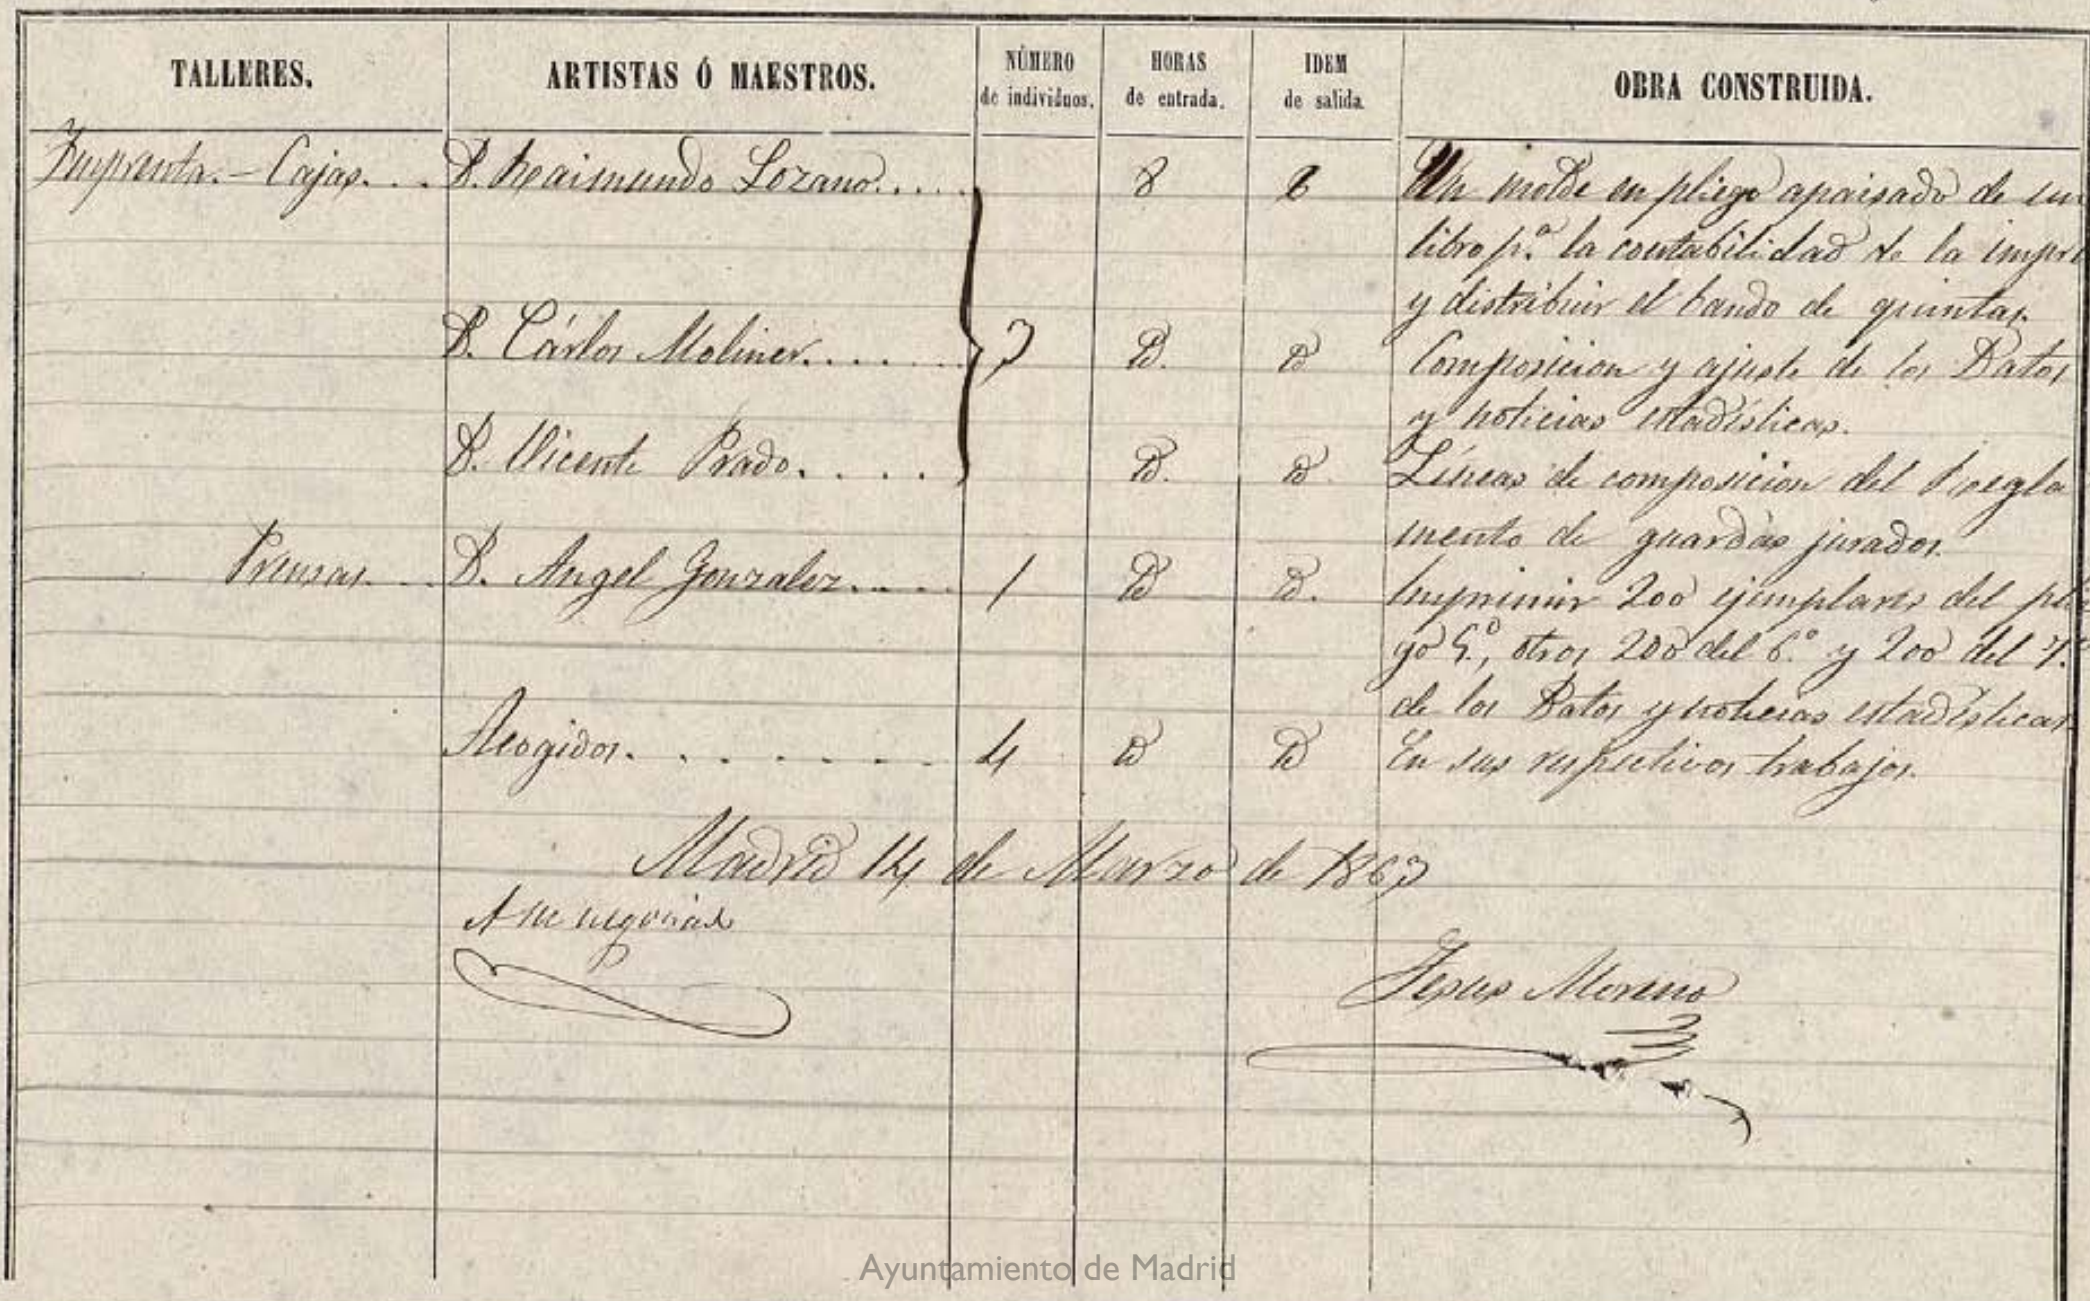 TALLERES. ARTISTAS Ó MAESTROS. NÚMERO de individuos. HORAS de entrada. IDEM de salida. OBRA CONSTRUIDA.
Imprenta.- Cajas... D. Raimundo Lozano..... 8 8 Un molde en pliego apaisado de un
libro p.ª la contabilidad de la impr
y distribuir el bando de quintas.
D. Cárlos Moliner...... 3 D. D Composicion y ajuste de los Datos
y noticias estadísticas.
D. Vicente Prado..... D. D. Líneas de composicion del Regla
mento de guardas jurados.
Prensas... D. Angel Gonzalez..... 1 D D. Imprimir 200 ejemplares del plie
go 5.º, otros 200 del 6.º y 200 del 7.º
de los Datos y noticias estadísticas.
Acogidos........ 4 D D En sus respectivos trabajos.
Madrid 14 de Marzo de 1863
Jesus Moreno
Ayuntamiento de Madrid